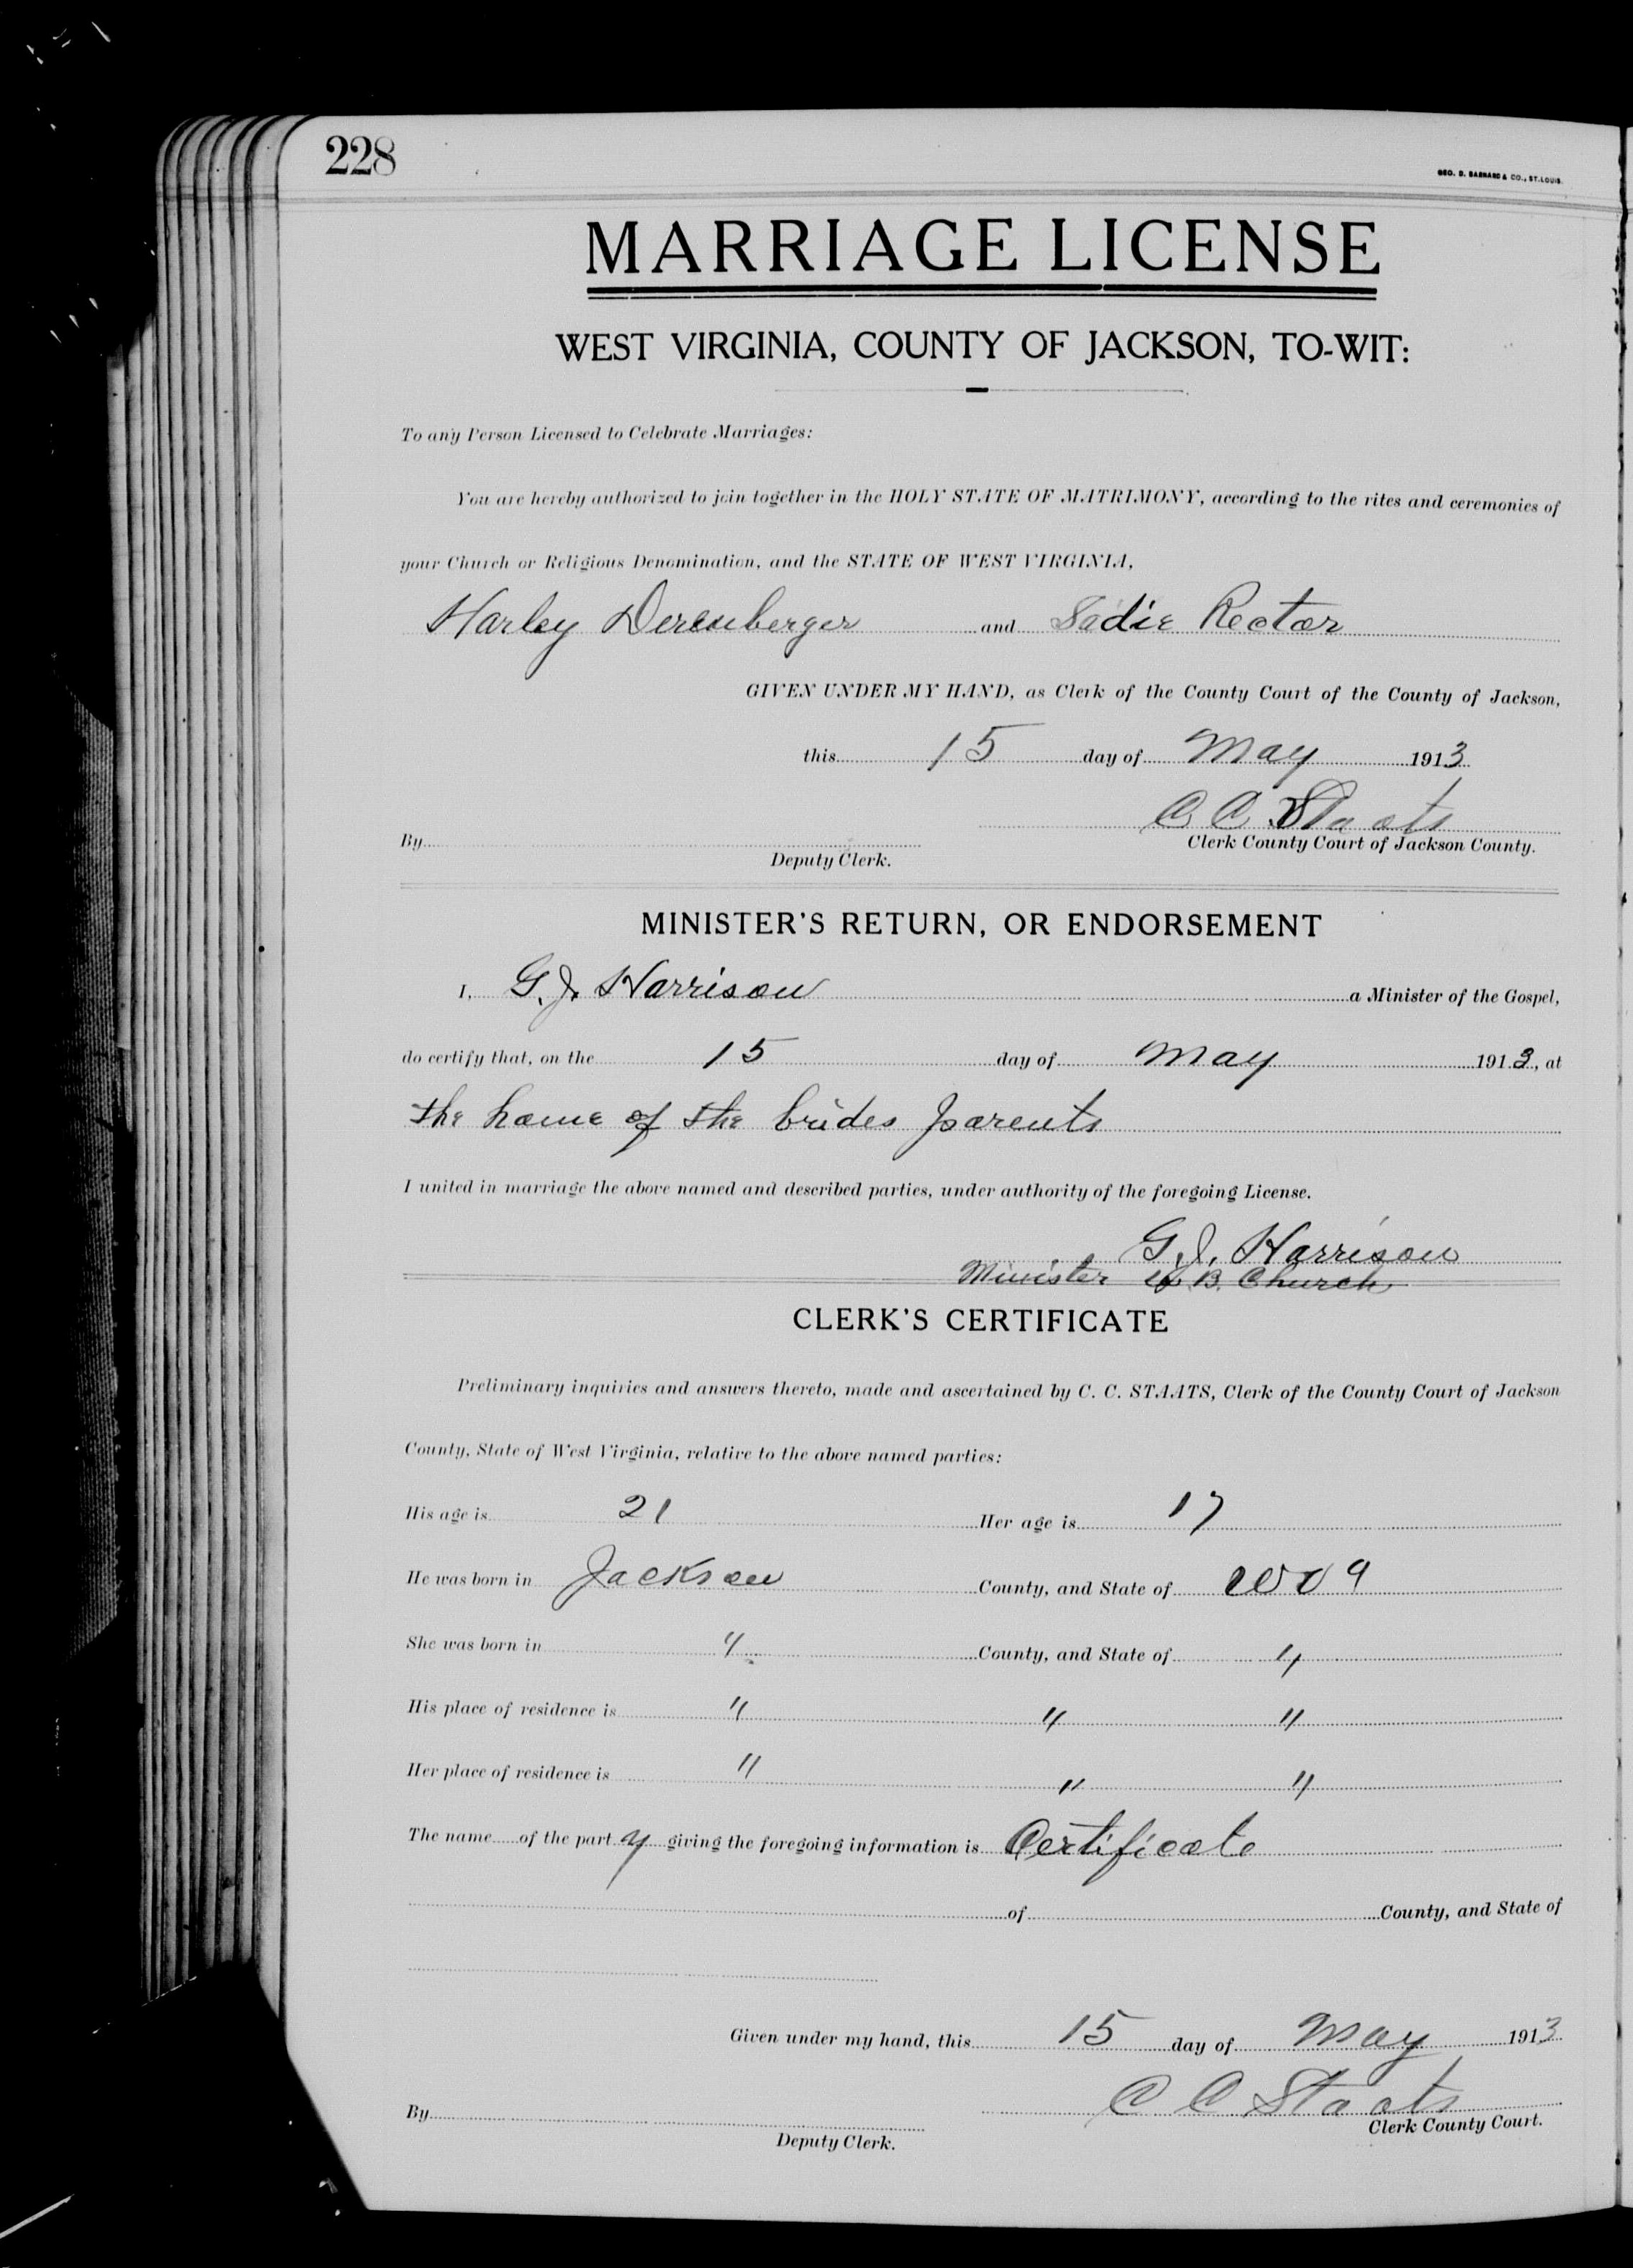 228
GEO. D. BARNARD & CO., ST. LOUIS.
MARRIAGE LICENSE
WEST VIRGINIA, COUNTY OF JACKSON, TO-WIT:
To any Person Licensed to Celebrate Marriages:
You are hereby authorized to join together in the HOLY STATE OF MATRIMONY, according to the rites and ceremonies of
your Church or Religious Denomination, and the STATE OF WEST VIRGINIA,
Harley Derenberger and Sadie Rector
GIVEN UNDER MY HAND, as Clerk of the County Court of the County of Jackson,
this 15 day of May 1913
C C Staats
By
Clerk County Court of Jackson County.
Deputy Clerk.
MINISTER'S RETURN, OR ENDORSEMENT
I, G. J. Harrison a Minister of the Gospel,
do certify that, on the 15 day of May 1913, at
the home of the brides parents
I united in marriage the above named and described parties, under authority of the foregoing License.
G. J. Harrison
Minister U. B. Church
CLERK'S CERTIFICATE
Preliminary inquiries and answers thereto, made and ascertained by C. C. STAATS, Clerk of the County Court of Jackson
County, State of West Virginia, relative to the above named parties:
His age is 21 Her age is 17
He was born in Jackson County, and State of W Va
She was born in " County, and State of "
His place of residence is " " "
Her place of residence is " " "
The name of the part y giving the foregoing information is Certificate
of County, and State of
Given under my hand, this 15 day of May 1913
C C Staats
By
Clerk County Court.
Deputy Clerk.